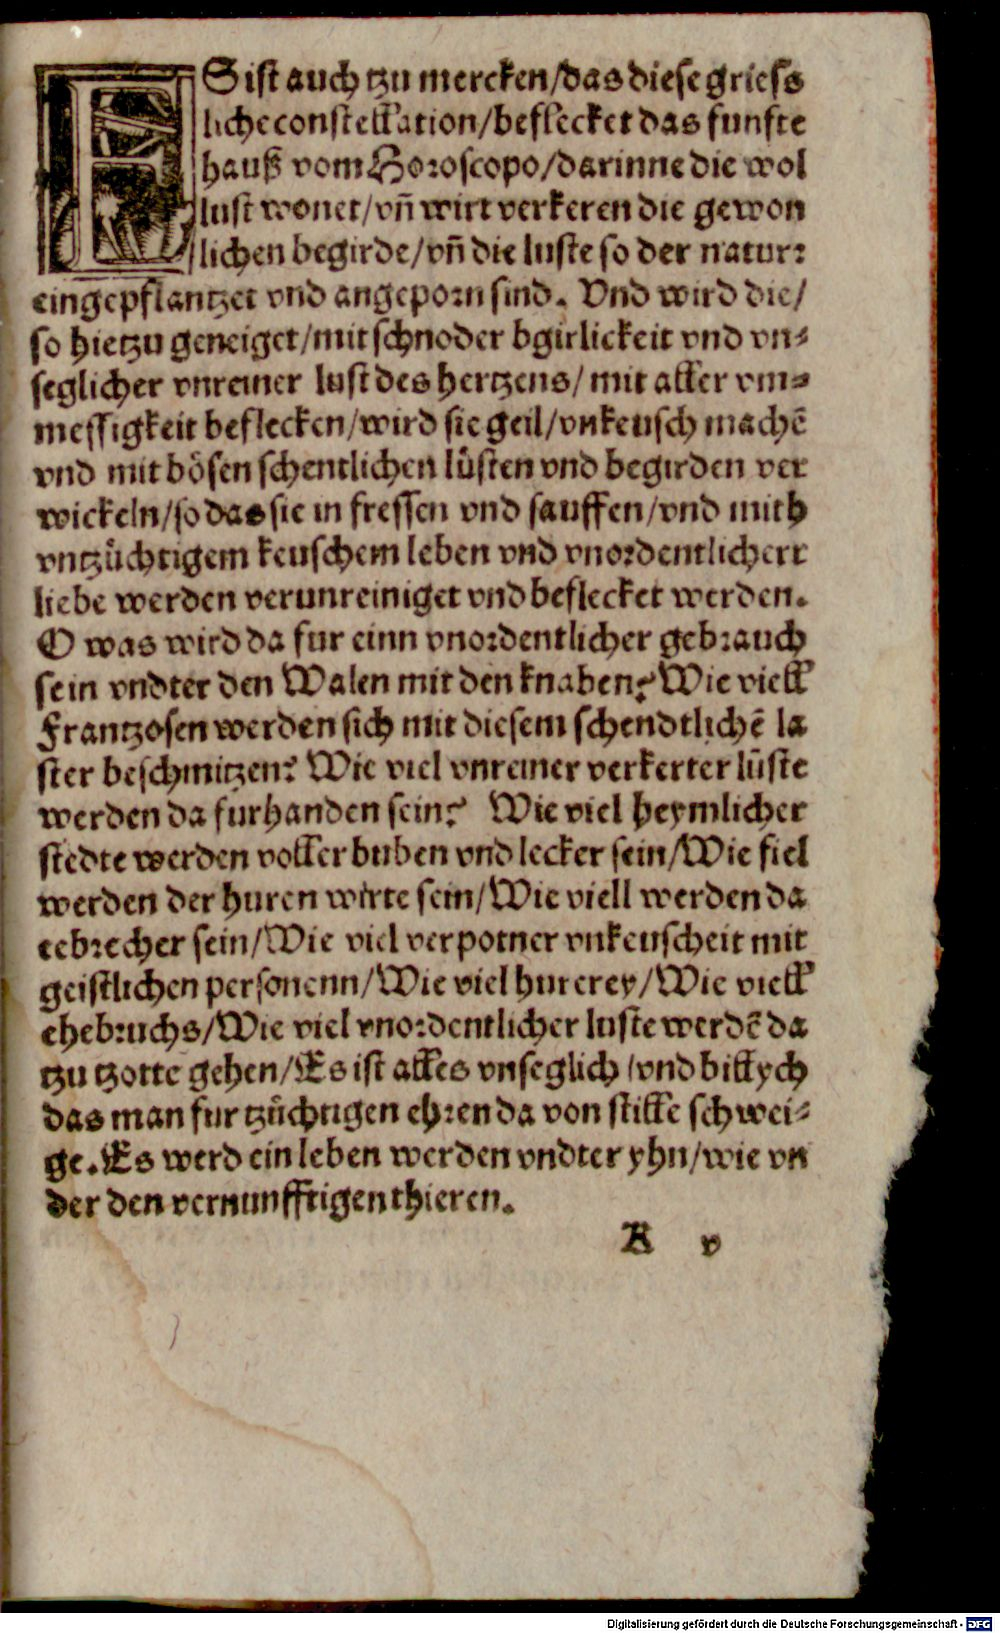 ES ist auch tzu mercken/das diese griess
liche constellation/beflecket das funfte
hauß vom Horoscopo/darinne die wol
lust wonet/vñ wirt verkeren die gewon
lichen begirde/vñ die luste so der natur:
eingepflantzet vnd angeporn sind. Vnd wird die/
so hietzu geneiget/mit schnoder bgirlickeit vnd vn⸗
seglicher vnreiner lust des hertzens/ mit aller vm⸗
messigkeit beflecken/wird sie geil/vnkeusch machẽ
vnd mit bösen schentlichen lüsten vnd begirden ver
wickeln/so das sie in fressen vnd sauffen/vnd mith
vntzüchtigem keuschem leben vnd vnordentlicherr
liebe werden verunreiniget vnd beflecket werden.
O was wird da fur einn vnordentlicher gebrauch
sein vndter den Walen mit den knaben? Wie viell
Frantzosen werden sich mit diesem schendtlichẽ la
ster beschmitzen? Wie viel vnreiner verkerter lüste
werden da furhanden sein? Wie viel heymlicher
stedte werden voller buben vnd lecker sein/Wie fiel
werden der huren wirte sein/Wie viell werden da
eebrecher sein/Wie viel verpotner vnkeuscheit mit
geistlichen personenn/Wie viel hurerey/Wie viell
ehebruchs/Wie viel vnordentlicher luste werdẽ da
tzu tzotte gehen/Es ist alles vnseglich/vnd billych
das man fur tzüchtigen ehren da von stille schwei⸗
ge. Es werd ein leben werden vndter yhn/wie vn
der den vernunfftigen thieren.
A v
Digitalisierung gefördert durch die Deutsche Forschungsgemeinschaft - DFG